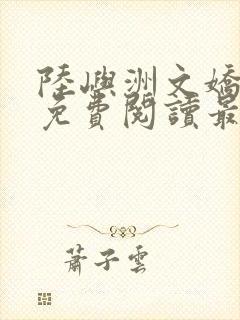 陸嶼洲文嬌
免費閱讀最
蕭子雲